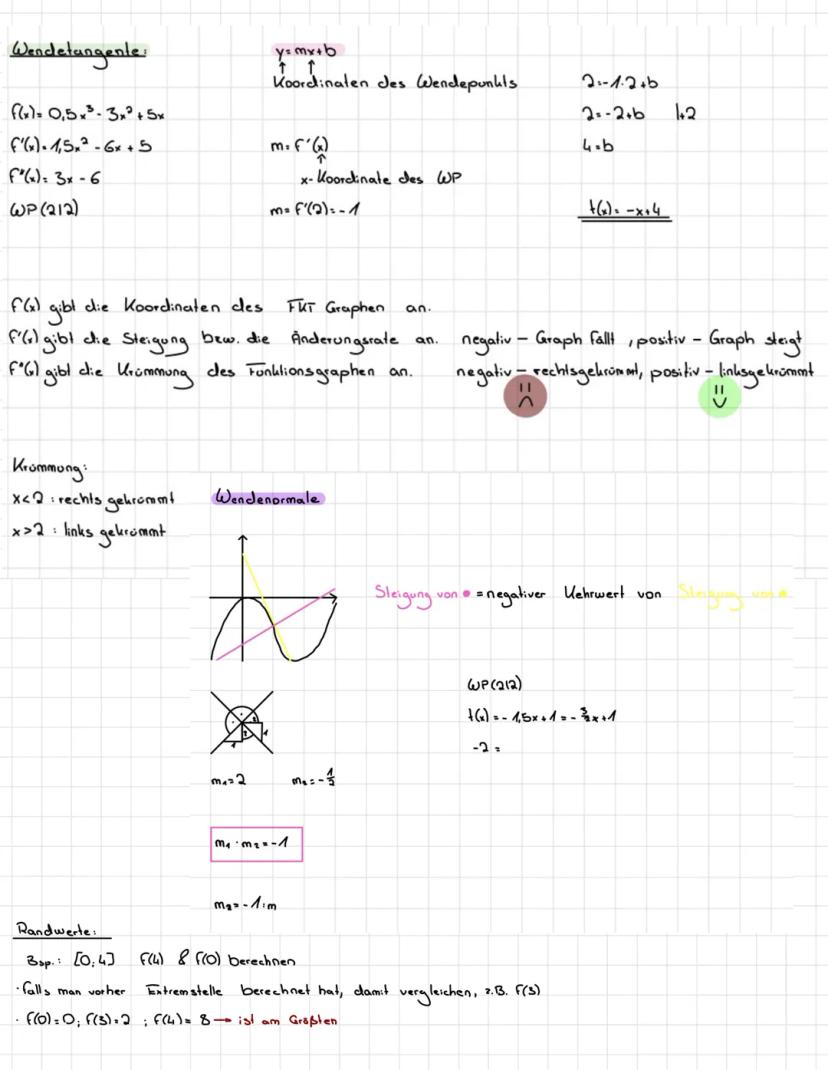 Wendetangente:
y=mx+b
↑ ↑
Koordinaten des Wendepunkts
f(x)= 0,5x³ - 3x² + 5x
f'(x)= 1,5x² - 6x + 5
f"(x)= 3x - 6
WP(2|2)
m= f'(x)
↑
x-Koordinate des WP
m= f'(2)= -1
2=-1·2+b
2=-2+b |+2
4=b
t(x)= -x+4
f(x) gibt die Koordinaten des FKT Graphen an.
f'(x) gibt die Steigung bzw. die Änderungsrate an. negativ - Graph fällt, positiv - Graph steigt
f"(x) gibt die Krümmung des Funktionsgraphen an. negativ - rechtsgekrümmt, positiv - linksgekrümmt
Krümmung:
x<2 : rechts gekrümmt
x>2 : links gekrümmt
Wendenormale
Steigung von • = negativer Kehrwert von Steigung von •
WP(2|2)
t(x)= -1,5x+1 = -3/2x+1
-2 =
m₁=2 m₂= -1/2
m₁ · m₂ = -1
m₂= -1:m
Randwerte:
Bsp.: [0;4] f(4) & f(0) berechnen
· falls man vorher Extremstelle berechnet hat, damit vergleichen, z.B. f(3)
· f(0)=0; f(3)=2 ; f(4)= 8 → ist am Größten